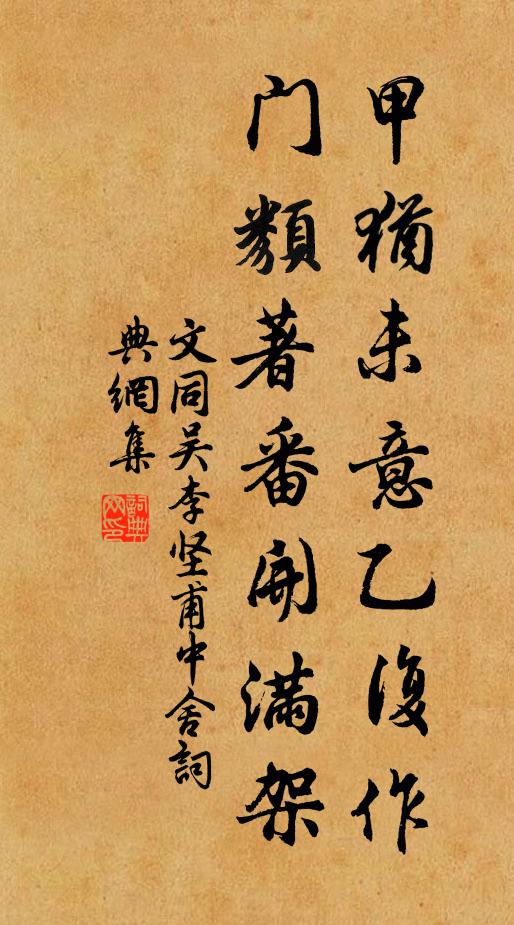 甲猶未意乙復作
門類著番開滿架
文同吴李坚甫中舍詞
典網集
詞典網印